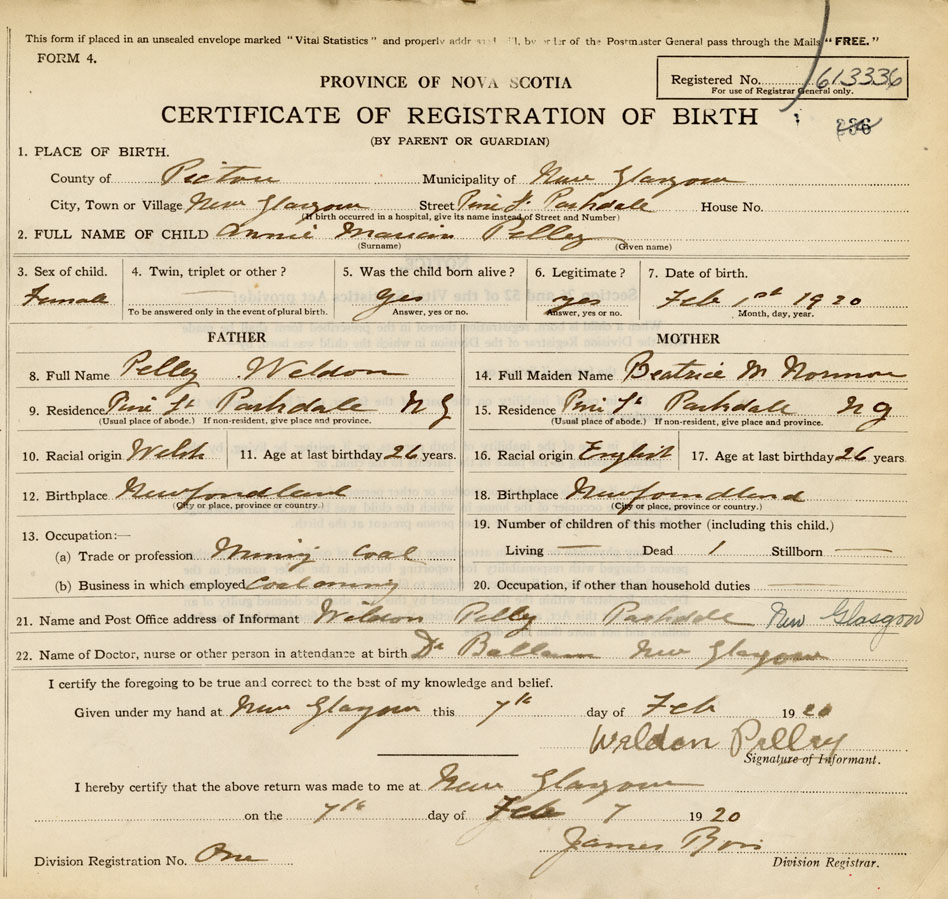 This form if placed in an unsealed envelope marked "Vital Statistics" and properly by order of the Postmaster General pass through the Mails "FREE."
FORM 4.
PROVINCE OF NOVA SCOTIA
Registered No. 613336
For use of Registrar General only.
CERTIFICATE OF REGISTRATION OF BIRTH
236
(BY PARENT OR GUARDIAN)
1. PLACE OF BIRTH.
County of Pictou Municipality of New Glasgow
City, Town or Village New Glasgow Street Pine St Parkdale House No.
(If birth occurred in a hospital, give its name instead of Street and Number)
2. FULL NAME OF CHILD Annie Pelley
(Surname) (Given name)
3. Sex of child. 4. Twin, triplet or other? 5. Was the child born alive? 6. Legitimate? 7. Date of birth.
Female Yes yes Feb 1st 1920
To be answered only in the event of plural birth. Answer, yes or no. Answer, yes or no. Month, day, year.
FATHER MOTHER
8. Full Name Pelley Weldon 14. Full Maiden Name Beatrice M Norman
9. Residence Pine St Parkdale N G 15. Residence Pine St Parkdale N G
(Usual place of abode.) If non-resident, give place and province. (Usual place of abode.) If non-resident, give place and province.
10. Racial origin Welsh 11. Age at last birthday 26 years. 16. Racial origin English 17. Age at last birthday 26 years.
12. Birthplace Newfondland 18. Birthplace Newfoundland
(City or place, province or country.) (City or place, province or country.)
13. Occupation:— 19. Number of children of this mother (including this child.)
(a) Trade or profession Mining Coal Living — Dead 1 Stillborn —
(b) Business in which employed 20. Occupation, if other than household duties
21. Name and Post Office address of Informant Weldon Pelley Parkdale New Glasgow
22. Name of Doctor, nurse or other person in attendance at birth Dr New Glasgow
I certify the foregoing to be true and correct to the best of my knowledge and belief.
Given under my hand at New Glasgow this 7th day of Feb 1920
Weldon Pelley
Signature of Informant.
I hereby certify that the above return was made to me at New Glasgow
on the 7th day of Feb 7 1920
James
Division Registration No. One Division Registrar.